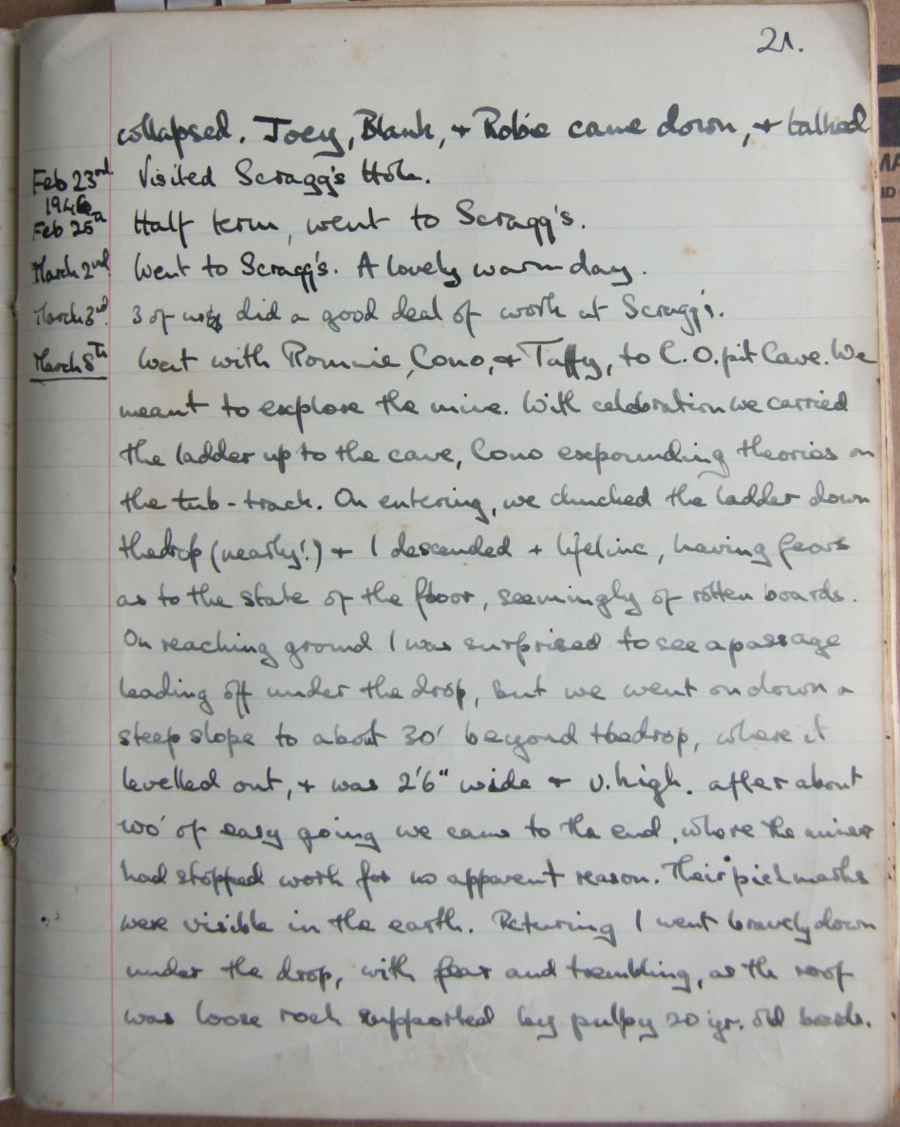 21.
collapsed. Joey, Blank, + Robie came down, + talked
Feb 23rd Visited Scragg's Hole.
1946
Feb 25th Half term, went to Scragg's.
March 2nd Went to Scragg's. A lovely warm day.
March 3rd. 3 of us did a good deal of work at Scragg's.
March 8th Went with Ronnie, Cono, & Taffy, to C.O. pit Cave. We
meant to explore the mine. With celebration we carried
the ladder up to the cave, Cono expounding theories on
the tub-track. On entering, we chucked the ladder down
the drop (nearly!) + I descended + lifeline, having fears
as to the state of the floor, seemingly of rotten boards.
On reaching ground I was surprised to see a passage
leading off under the drop, but we went on down a
steep slope to about 30' beyond the drop, where it
levelled out, + was 2'6" wide + v. high. after about
100' of easy going we came to the end, where the miners
had stopped work for no apparent reason. Their pick marks
were visible in the earth. Returning I went bravely down
under the drop, with fear and trembling, as the roof
was loose rock supported by pulpy 20 yr. old boards.